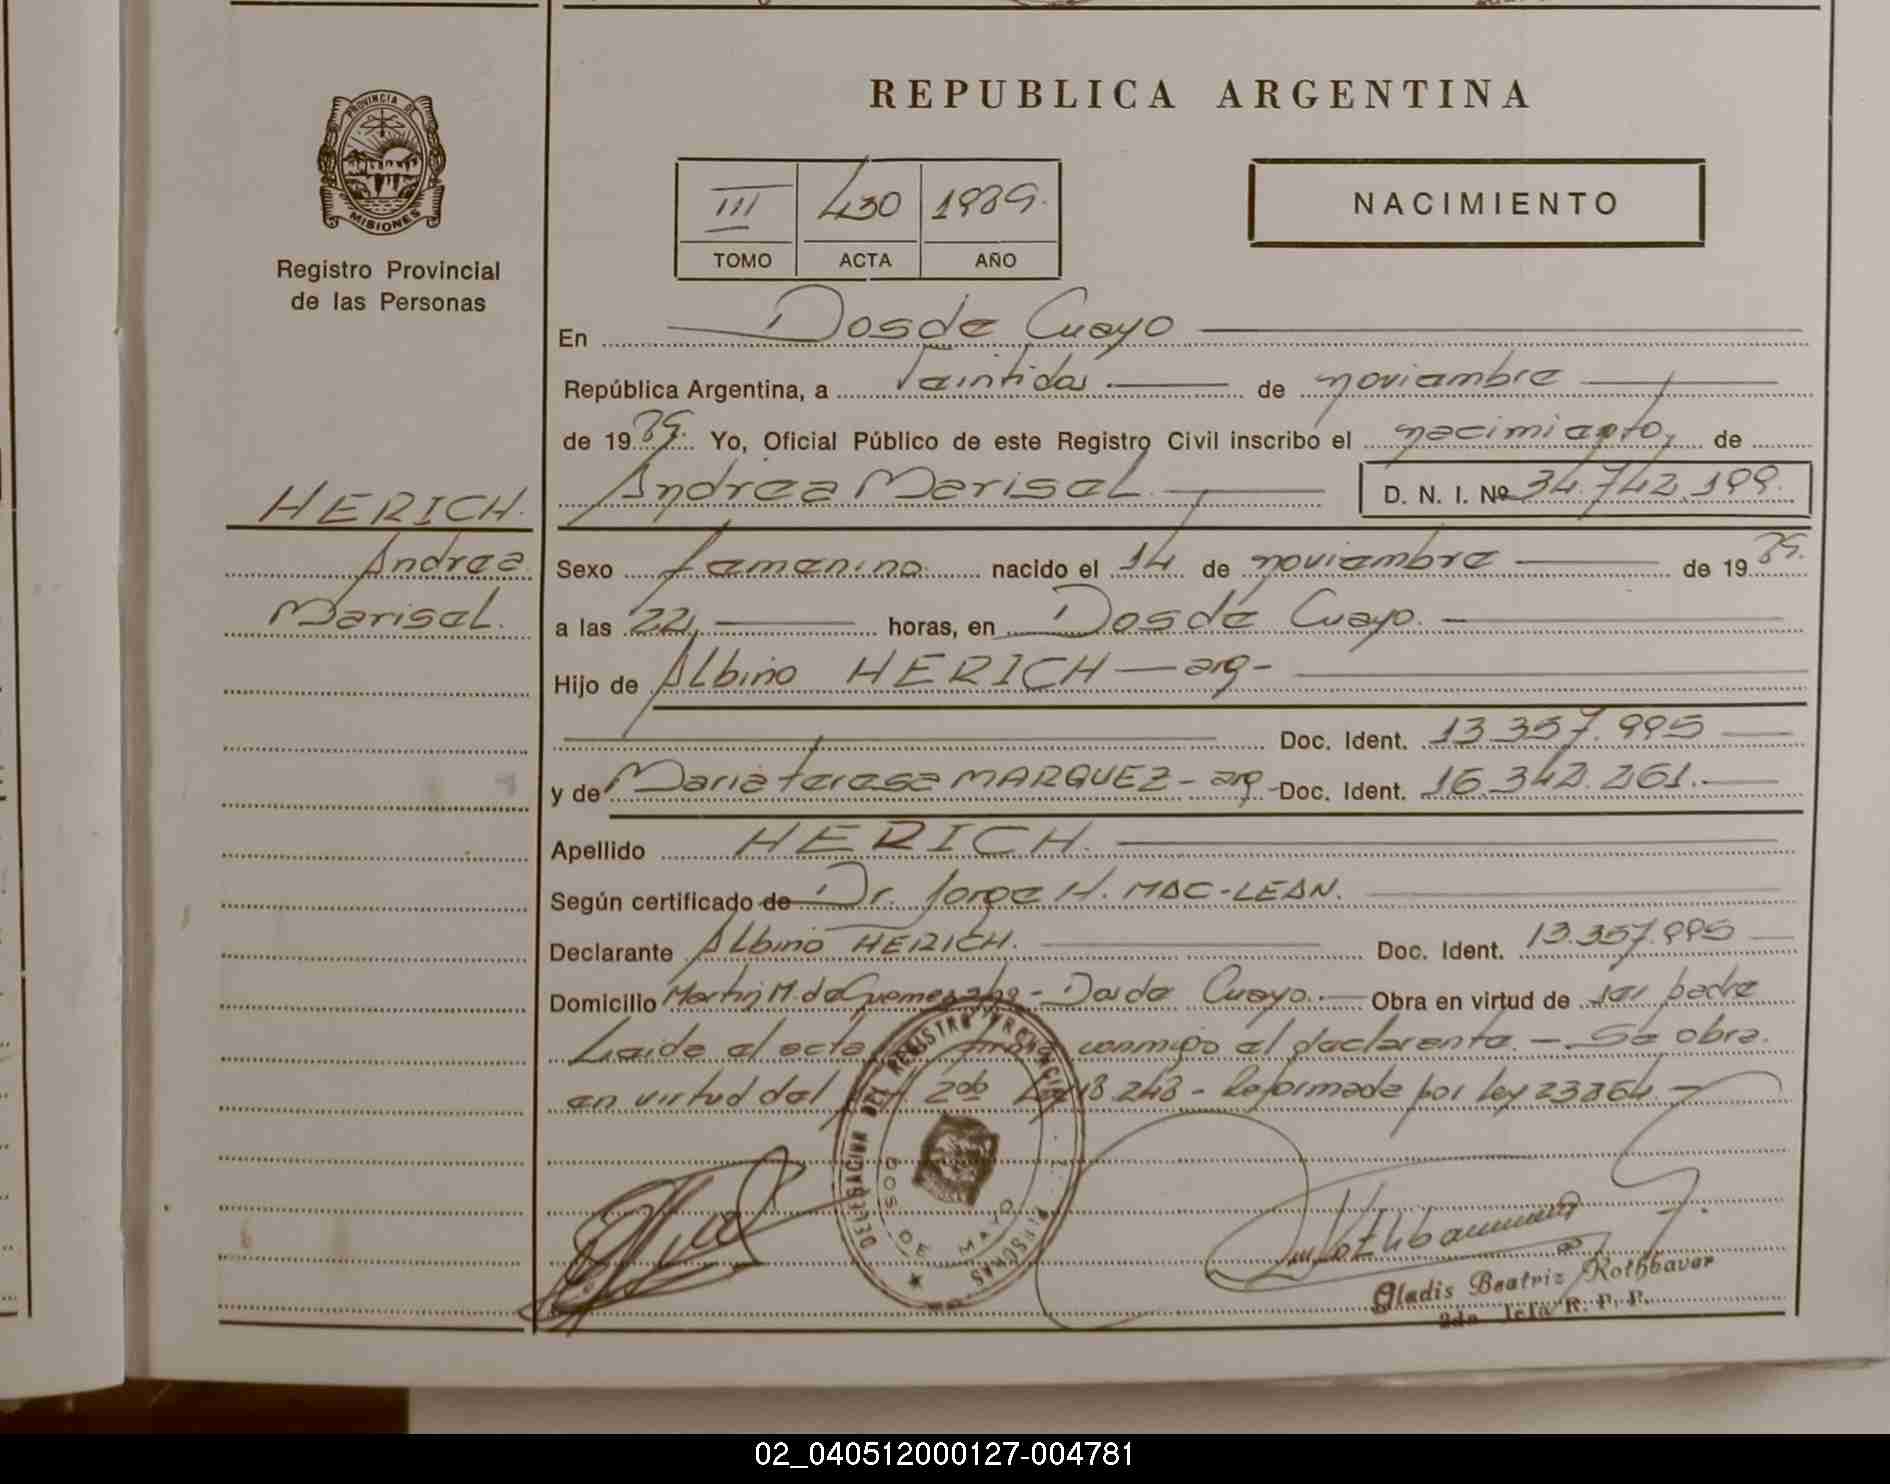 REPUBLICA ARGENTINA
PROVINCIA DE
MISIONES
Registro Provincial
de las Personas
III 430 1989.
TOMO ACTA AÑO
NACIMIENTO
En Dos de Mayo
República Argentina, a Veintidos de noviembre
de 1989. Yo, Oficial Público de este Registro Civil inscribo el nacimiento, de
Andrea Marisel D. N. I. Nº 34.742.199.
HERICH.
Andrea
Marisel.
Sexo femenino. nacido el 14 de noviembre de 1989.
a las 22, horas, en Dos de Mayo.
Hijo de Albino HERICH — arg -
Doc. Ident. 13.357.995
y de Maria teresa MARQUEZ - arg - Doc. Ident. 16.342.261.
Apellido HERICH.
Según certificado de Dr. Jorge H. MAC-LEAN.
Declarante Albino HERICH. Doc. Ident. 13.357.995
Domicilio Martin M. de Guemes - Dos de Mayo. Obra en virtud de ser padre
Leida el acta firma conmigo el declarante. - Se obra
en virtud del Ley 18.248 - Reformada por ley 23264.
DELEGACION DEL REGISTRO PROVINCIAL PERSONAS
DOS DE MAYO
Gladis Beatriz Rothbauer
2da. Jefa R. P. P.
02_040512000127-004781